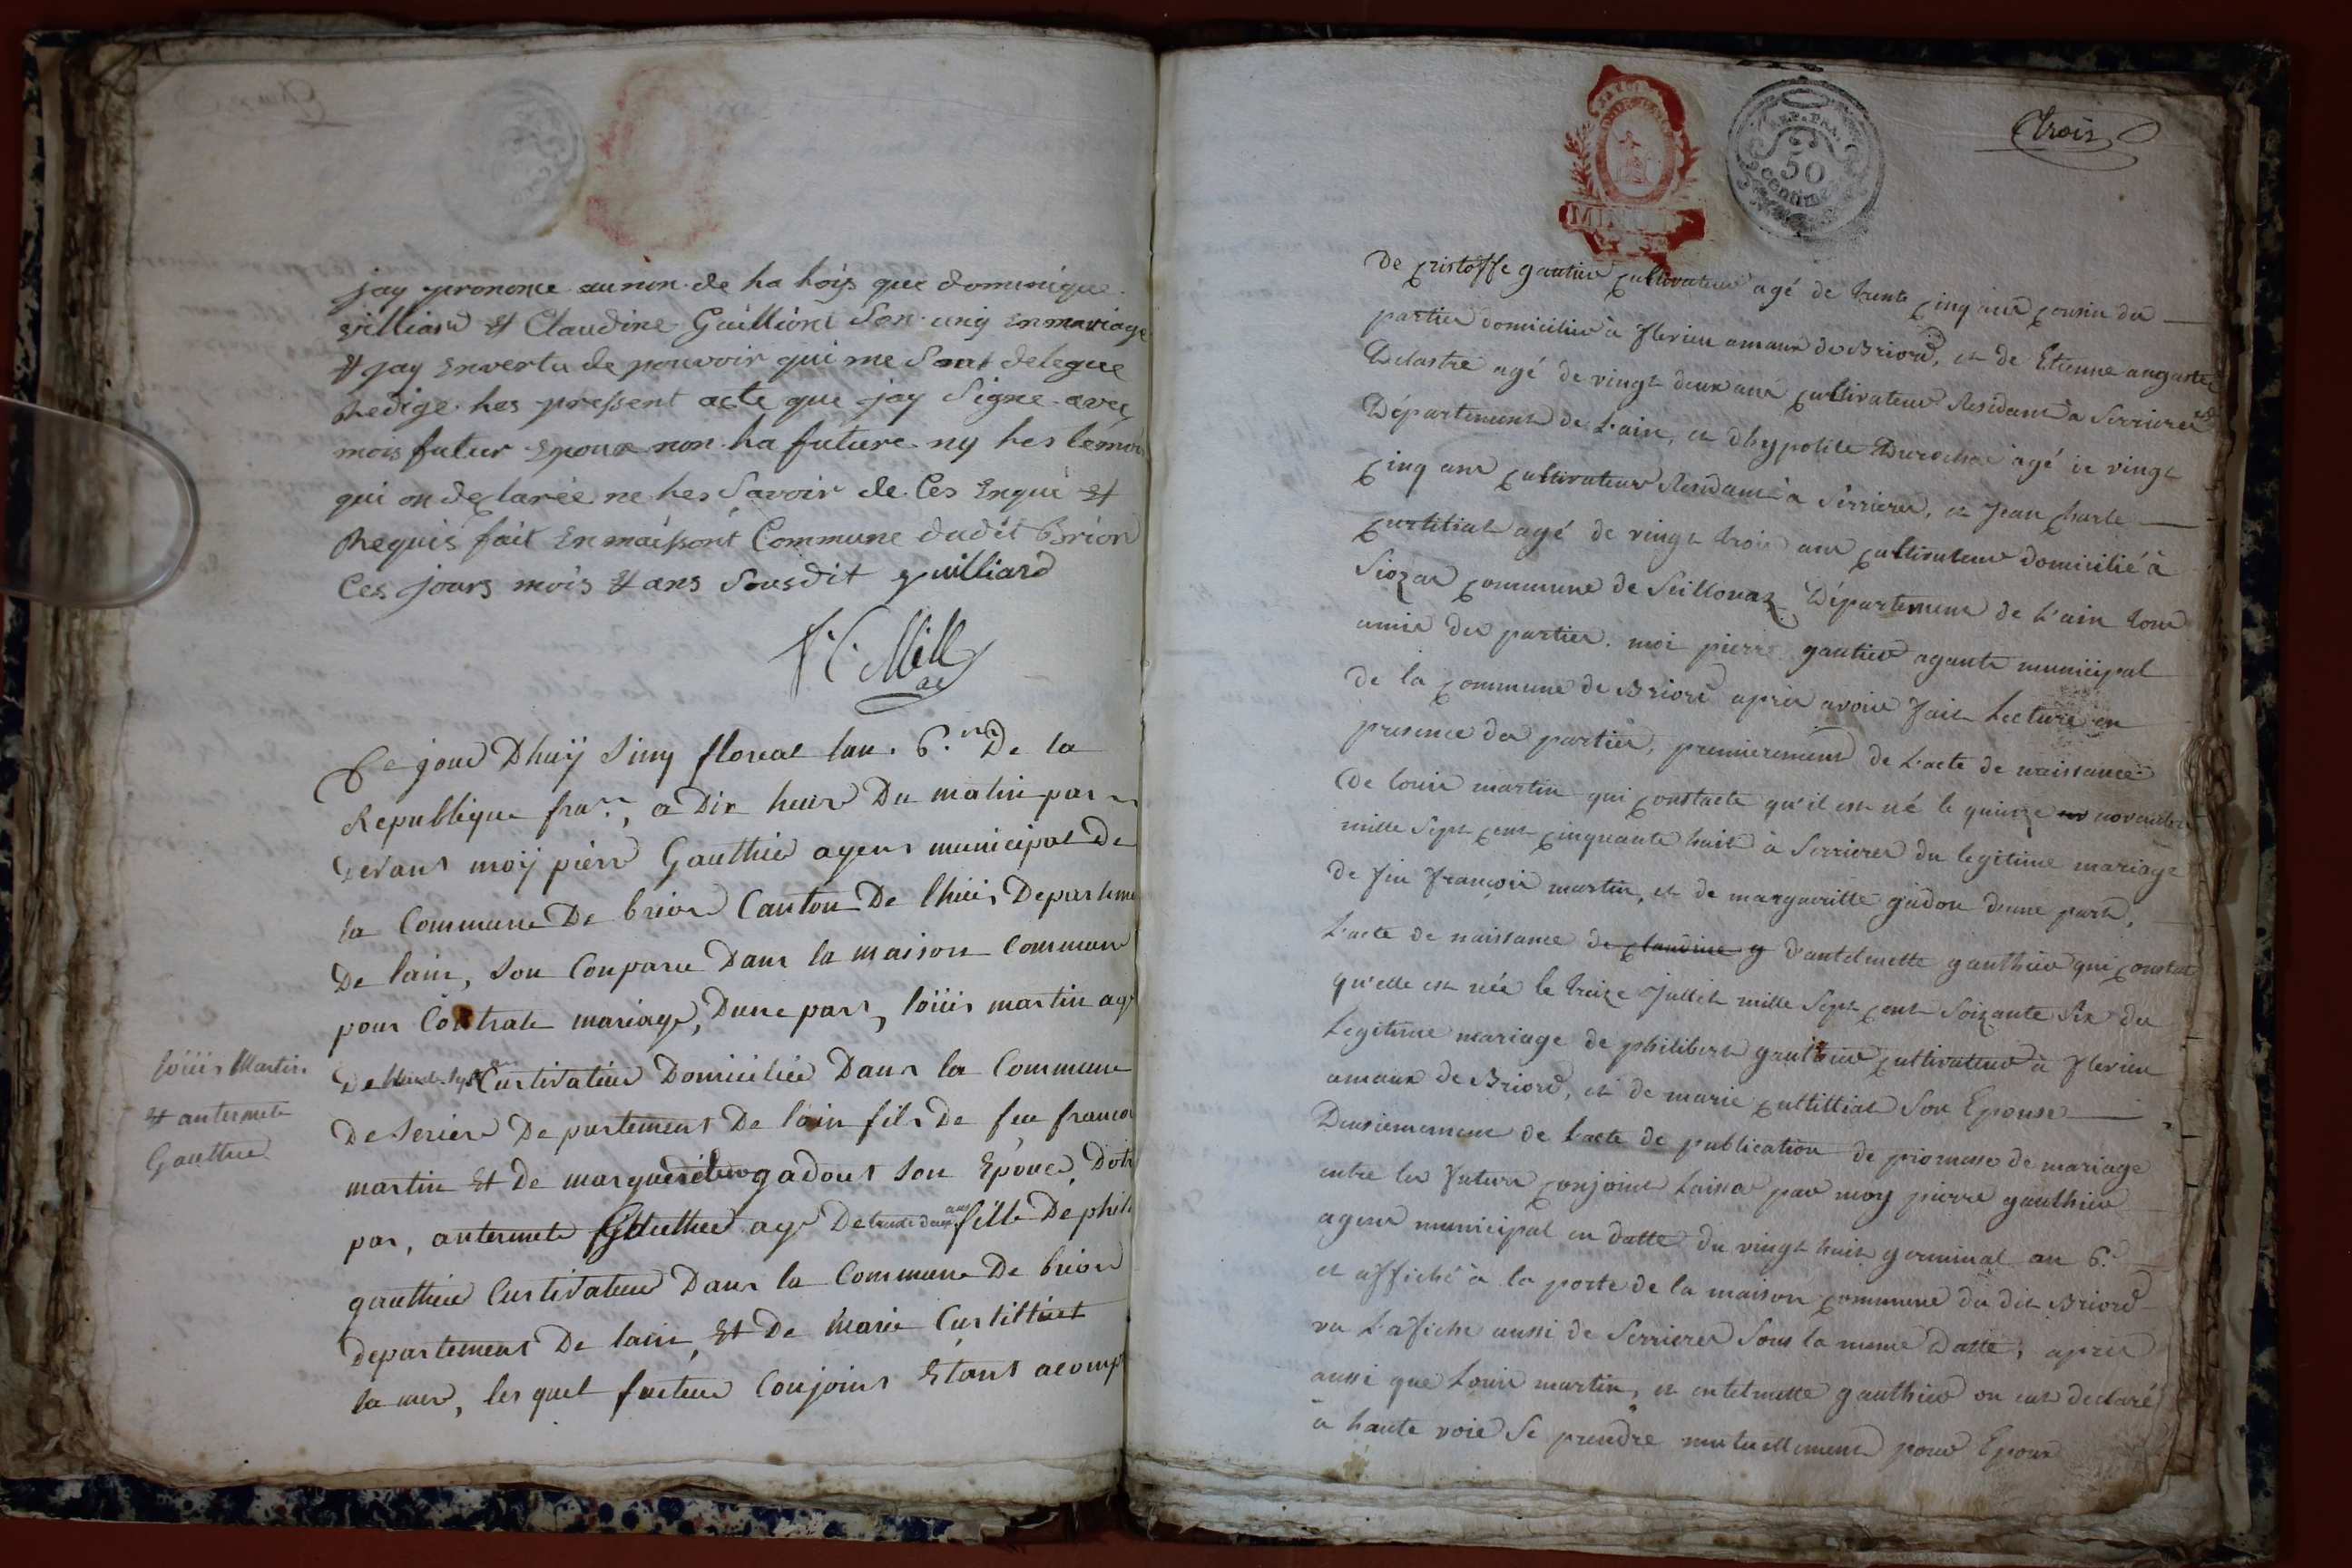 jay prononce au non de ha loys que dominique
villiard et Claudine Guilliont Son unig en mariage
et jay En vertu de pouvoir qui me Sont delegue
Redige hes pressent acte que jay Signe avec
mois futur Epoux non ha future ny hes temoi
qui on declarée ne hes Savoir de Ces Enqui Et
Requis fait En maissont Commune dudit Brior
Ces jours mois et ans Sousdit guilliard
Ce jour Dhuÿ Sinq floreal lan . 6.me De la
Republique fra.se, a Dix heur Du matin par
Devant moÿ pierr Gauthier agent municipal De
la Commune De brior Canton De lhuis Departeme
De lain, Son Conparu Dans la maison Commun
pour Contrate mariage, Dune part, loüis martin ag
loüis Martin
et antermete
Gauthier
De Cultivateur Domiciliée Dans la Commune
De Serier Departement De lain fils De feu francoi
martin Et De marguerite gadout Son Epouce, Dotr
par, antermete Gauthier agé De trente deux ans fille De phili
gauthier Cultivateur Dans la Commune De brior
departement De lain, Et De marie Curtilliat
la mer, lesquel futeur Conjoint Etant acomp
trois
REP. FRA.
50
centimes
De cristoffe gautier cultivateur agé de trente cinq ans cousin des
parties domicilié à flerieu amaux de Briord, et de Etienne auguste
Delastre agé de vingt deux ans cultivateur Residant à Serrieres
Département de L'ain, et dhypolite Durochat âgé de vingt
cinq ans cultivateur Residant à Serrieres, et Jean charle
curtiliat agé de vingt trois ans cultivateur domicilié à
Siozas commune de Seillonaz Département de L'ain tous
amis des parties. moi pierre gautier agante municipal
de la commune de Briord après avoir fait Lecture en
presence des parties, premierement de L'acte de naissance
de Louis martin qui constacte qu'il est né le quinze novembre
mille Sept cent cinquante huit à Serrieres du legitime mariage
de feu François martin, et de margueritte gadou d'une part,
L'acte de naissance de claudine g d'antelmette gauthier qui constate
qu'elle est née le treize Juillet mille Sept cent Soixante Six du
Legitime mariage de philibert gauthier cultivateur à flerieu
amaux de Briord, et de marie cultilliat Son Epouse
Deusiemement de L'acte de publication de promesse de mariage
entre les Futurs conjoint Laissa par moy pierre gauthier
agent municipal en datte du vingt huit germinal an 6.e
et affiché à la porte de la maison commune du dit Briord
vu L'afiche aussi de Serrieres Sous la meme Datte, après
aussi que Louis martin, et antelmette gauthier on eut declaré
à haute voie Se prendre mutuellement pour Epoux